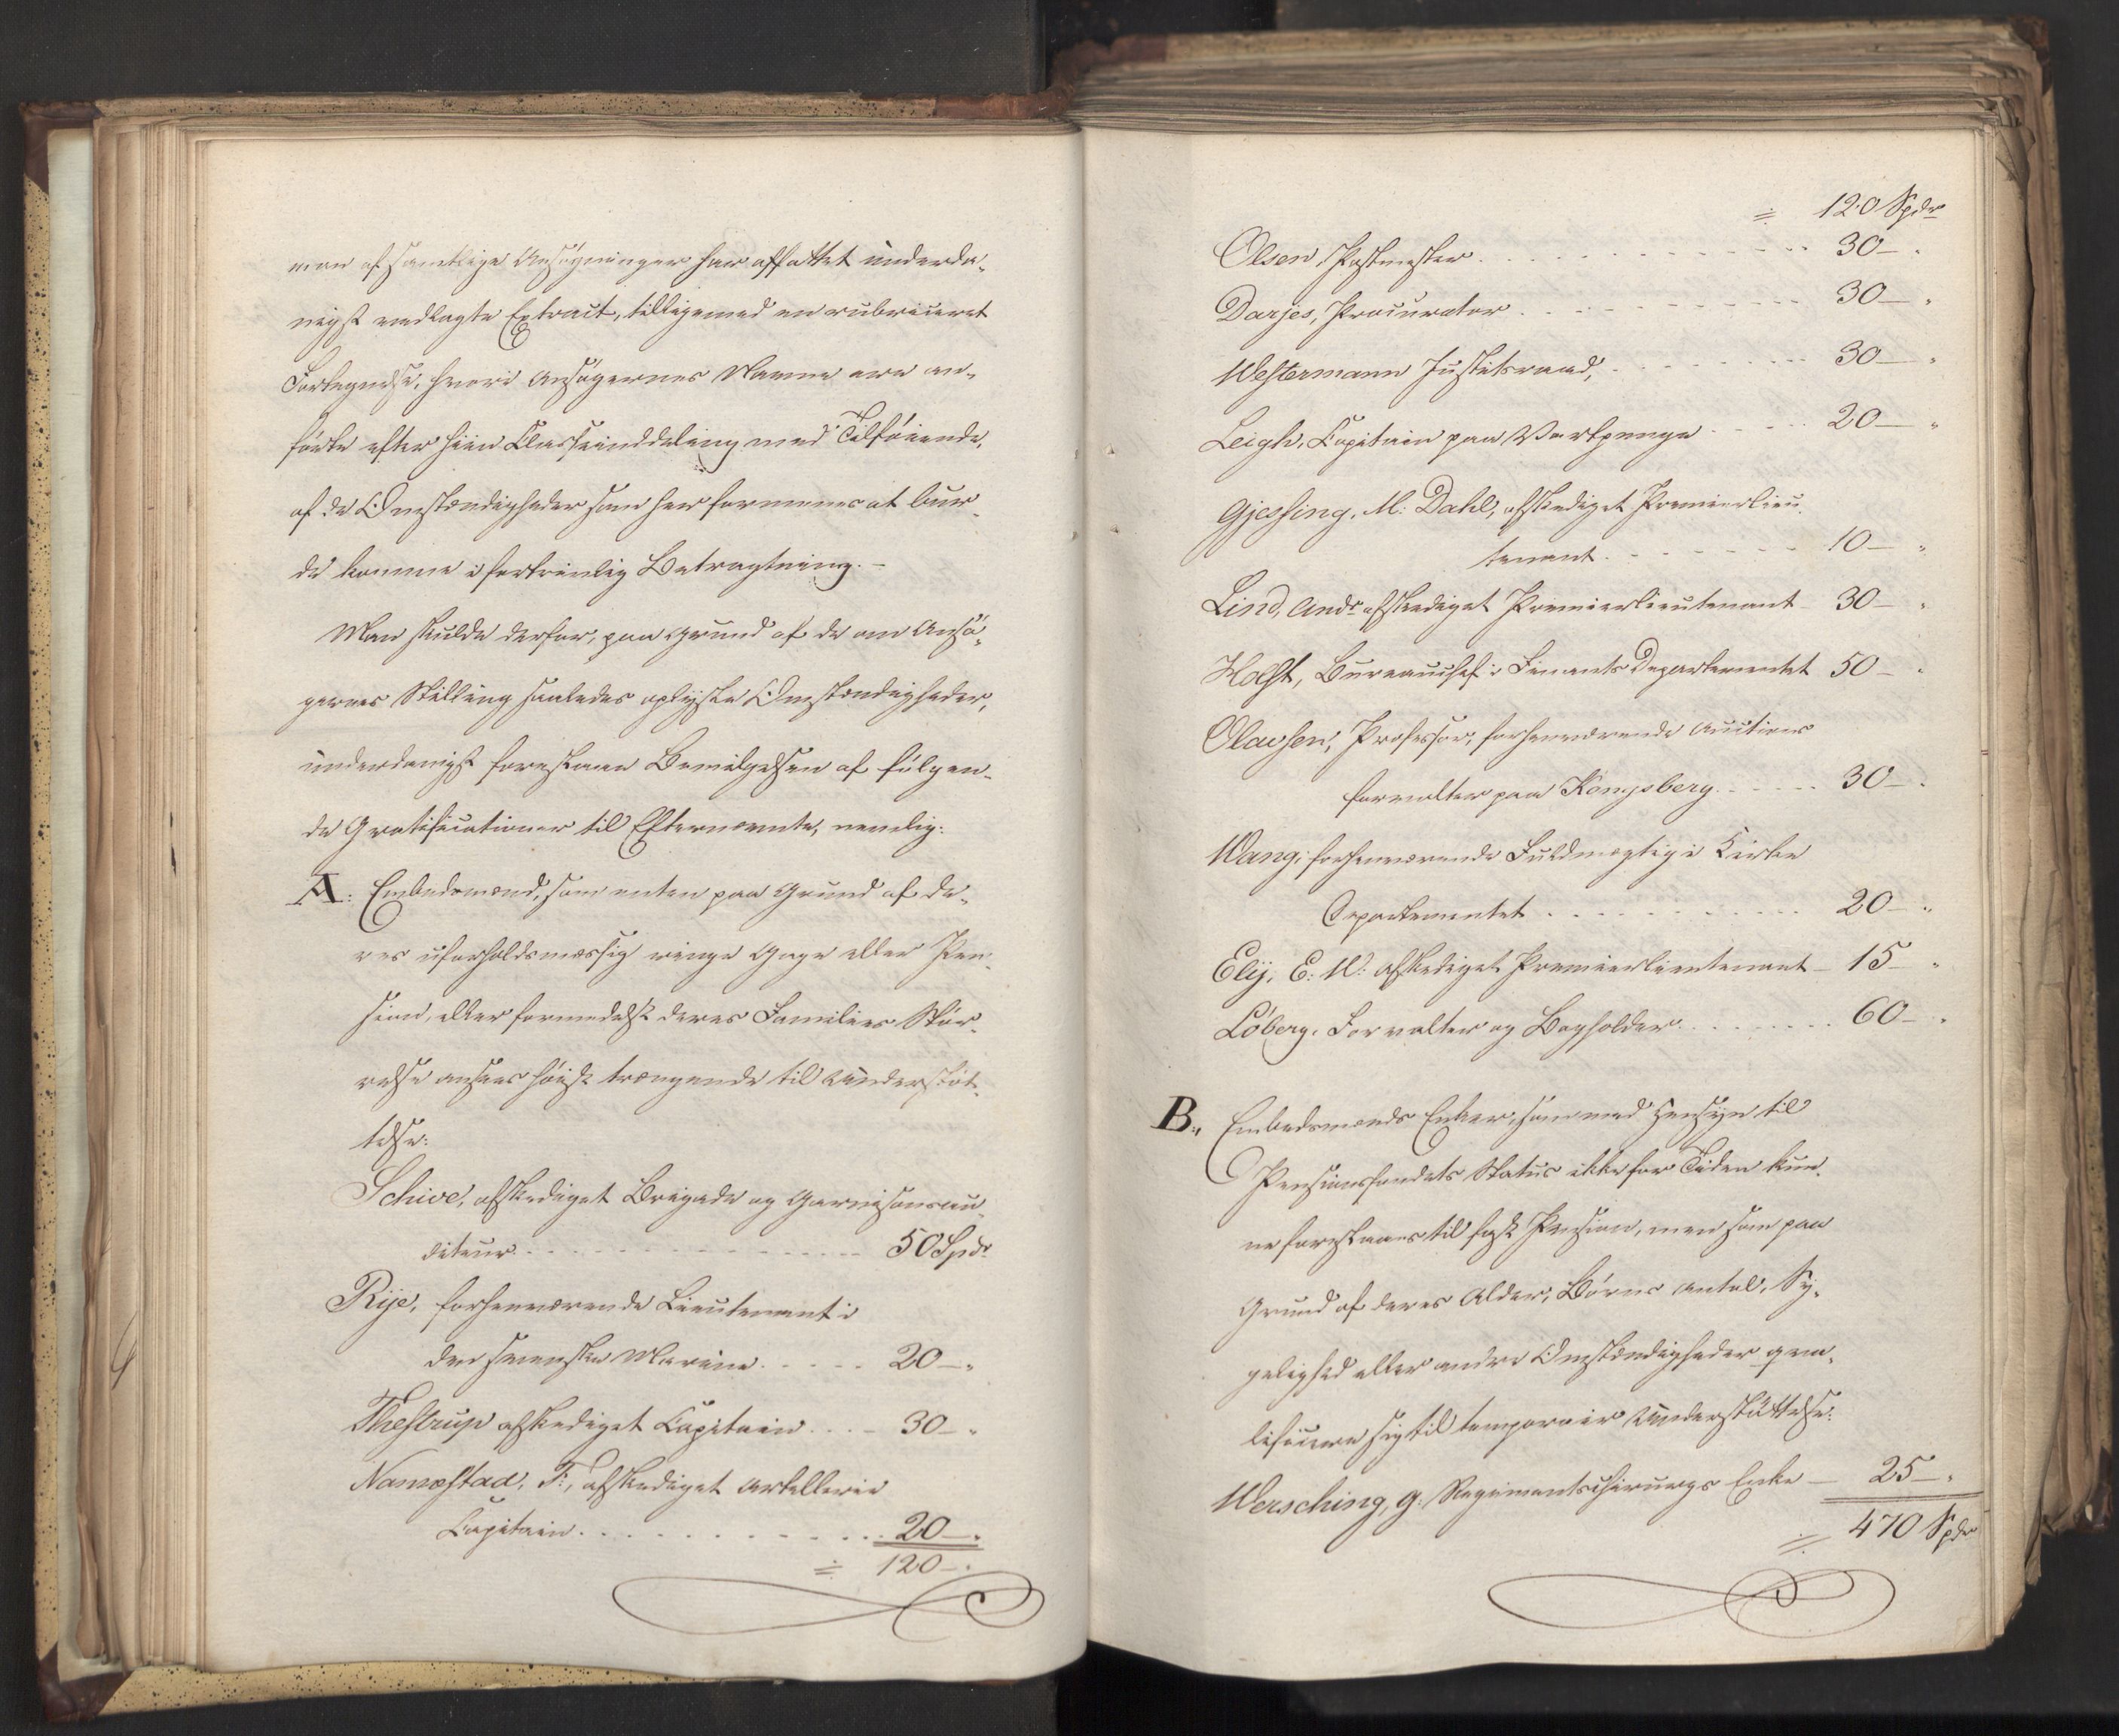 man af samtlige Ansøgninger har affattet underda-
nigst vedlagte Extract, tilligemed en rubriceret
Fortegnelse, hvori Ansøgernes Navne ere an-
førte efter hiin Classeinddeling med Tilføiende,
af de Omstændigheder som her formenes at bur-
de komme i fortrinlig Betragtning.-
Man skulde derfor, paa Grund af de om Ansø-
gernes Stilling saaledes oplyste Omstændigheder,
underdanigst foreslaae Bevilgelsen af følgen-
de Gratificationer til Efternævnte, nemlig:
A: Embedsmænd, som enten paa Grund af de-
res uforholdsmæssig ringe Gage eller Pen-
sion, eller formedelst deres Families Stør-
relse ansees høist trængende til Understøt-
telse:
Schive, afskediget Brigade og Garnisonsau-
diteur - - - 50 Spdr
Rije, forhenværende Lieutenant i
den svenske Marine - - - 20 - "
Thestrup afskediget Capitain - - - 30 - "
Namæstad, T:, afskediget Artillerie
Capitain - - - 20 - "
= 120 - "
= 120 Spdr
Olsen, Postmester - - - 30 - "
Darjes, Procurator - - - 30 - "
Westermann Justitsraad, - - - 30 - "
Leigh, Capitain paa Vartpenge - - - 20 - "
Gjessing, M: Dahl, afskediget Premierlieu-
tenant - - - 10 - "
Lind, Andr: afskediget Premierlieutenant - 30 - "
Holst, Bureauchef i Finants Departementet 50 - "
Olavsen, Professor, forhenværende Auctions
forvalter paa Kongsberg - - - 30 - "
Wang, forhenværende Fuldmægtig i Kirke
Departementet - - - 20 - "
Elij, E: W: afskediget Premierlieutenant - 15 - "
Løberg, Forvalter og Bogholder - - - 60 - "
B., Embedsmænds Enker, som med Hensyn til
Pensionsfondets Status ikke for Tiden kun-
ne foreslaaes til fast Pension, men som paa
Grund af deres Alder, Børns Antal, Sy-
gelighed eller andre Omstændigheder qva-
lificere sig til temporair Understøttelse:
Wersching, G. Regimentschirurgs Enke - 25 - "
= 470 Spdr